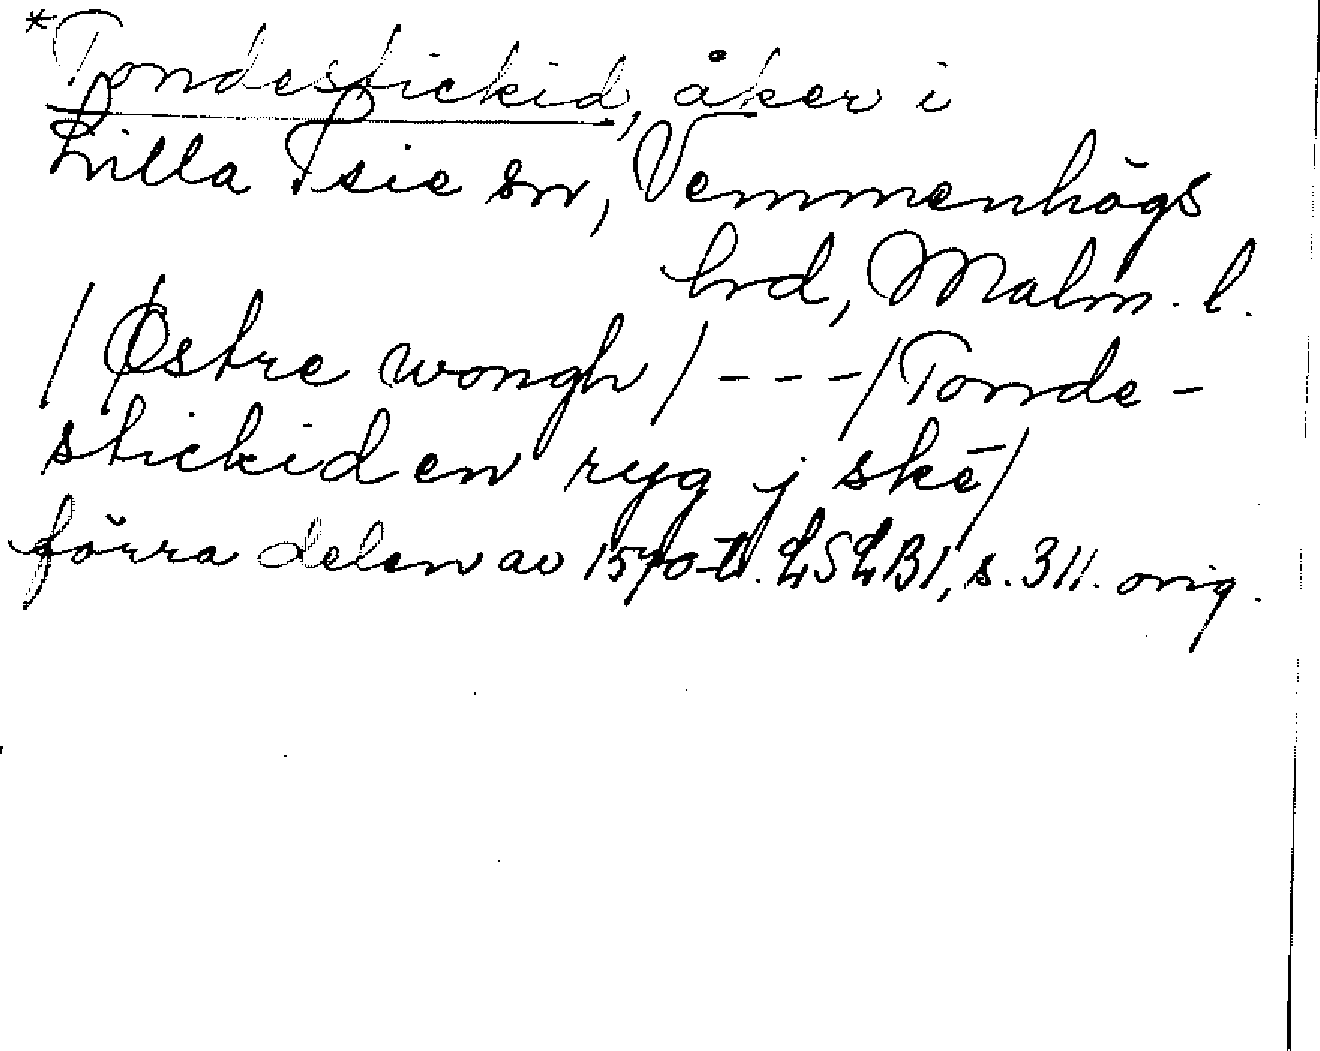 *Tondestickid, åker i
Lilla Isie sn, Vemmenhögs
hrd, Malm. l.
/Østre wongh/ - - -/Tonde-
stickid en ryg j skē/
förra delen av 1570-t. LSLB1, s. 311. orig.